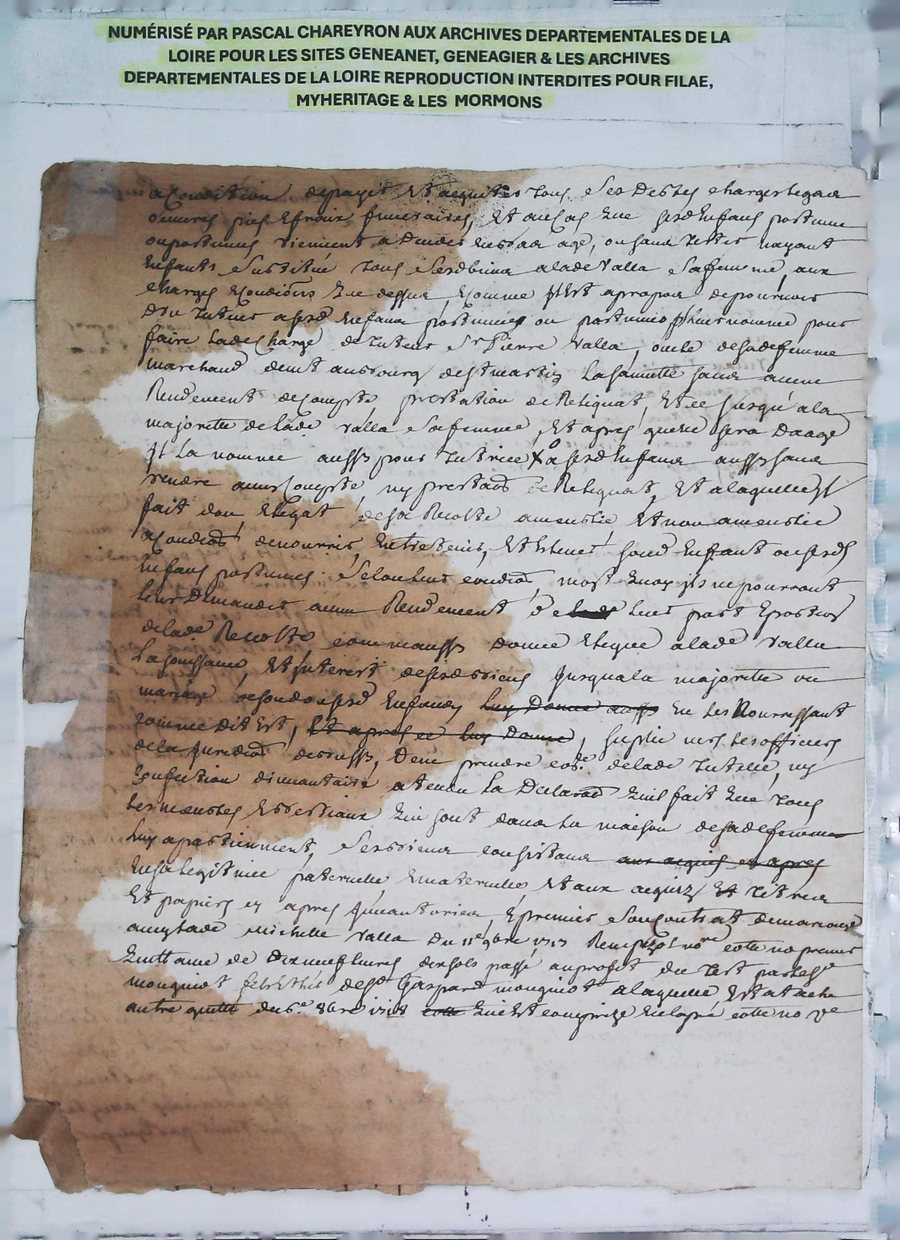 NUMÉRISÉ PAR PASCAL CHAREYRON AUX ARCHIVES DEPARTEMENTALES DE LA
LOIRE POUR LES SITES GENEANET, GENEAGIER & LES ARCHIVES
DEPARTEMENTALES DE LA LOIRE REPRODUCTION INTERDITES POUR FILAE,
MYHERITAGE & LES MORMONS
a Condition de payer Et acquiter tous ses Debtes charges legats
oeuvres pies Et fraix funeraires, Et au cas que sesd Enfans postume
ou postumes viennent a Deceder en bas age, ou sans tester nayant
Enfants Substitue tous sesd biens a lade Valla sa femme, aux
charges Conditions que dessus, Comme Il Est apropos de pourvoir
D'un tuteur a sesd Enfans postume ou postumes nomme pour
faire lade Charge de tuteur Sr Pierre Valla, de sade femme
marchand au bourg de st martin la sauvette sans aucun
Rendement de Compte prestation de Reliquat, Et ce Jusqu'a la
majorite de lade Valla sa femme, Et apres quelle sera Daage
Il La nomme aussy pour tutrice a sesd Enfans aussy sans
rendre aucun Compte ny prestaon de Reliquat, Et a laquelle Il
fait don Elegat de sa Recolte ameublie Et non ameublie
a Condion de nourrir, Entretenir, Et Elever sond Enfant ou sesd
Enfans postumes selon leur condion, moy ils ne pourront
leur Demander aucun Rendement de leur part
de lade Recolte comme aussy donne Elegue a lade Valla
La Jouissance Et Interest de sesd biens Jusqu'a la majorite ou
mariage de sond ou sesd Enfans luy Donne aussy En les Nourrissant
comme dit Est, Et apres ce luy donne, suplie mrs les officiers
de la Juridion de prendre de lade tutelle, ny
Confection dinvantaire atendu La Declaraon quil fait que tous
les meubles Et bestiaux qui sont dans la maison de sade femme
luy apartiennent, ses biens consistans aux acquis es apres
En sa legitime paternelle Ematernelle Et aux acquis Et titres
Et papiers cy apres Jnvantories, Epremier son contrat de mariage
avec lade Michelle Valla du 11e 9bre 1717 cotte no premier
quittance de Dixneuf livres dix sols passé au profit du test par
mougniot de Gaspard mougniot a laquelle Est atache
autre quitt du 6e 8bre 1718 cotte qui Est comprize cotte no